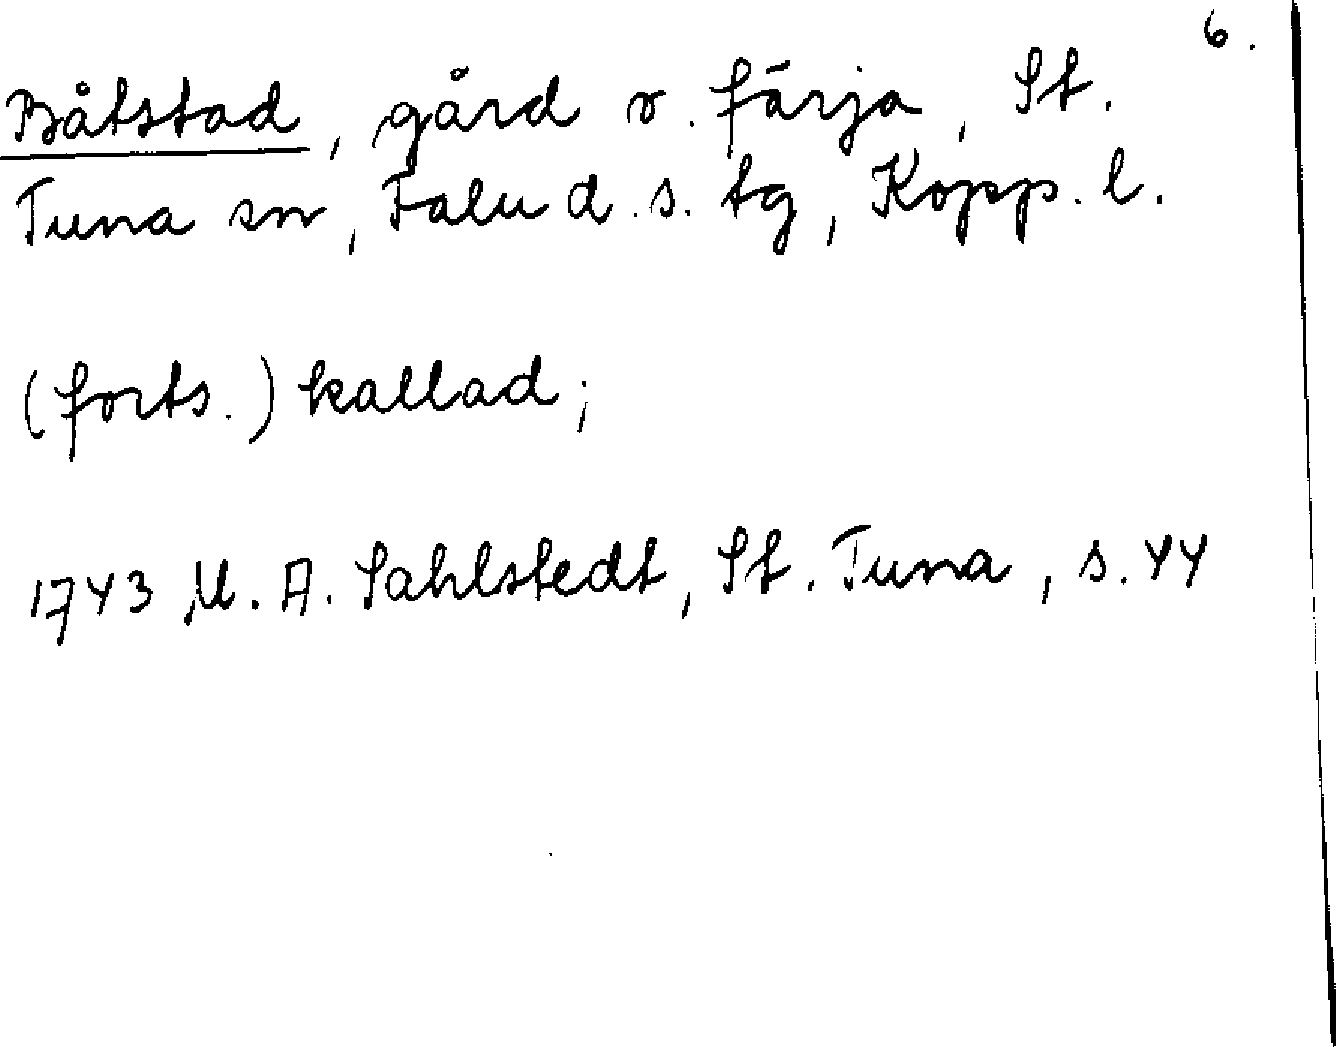 6.
Båtstad, gård o. färja, St.
Tuna sn, Falu d. s. tg, Kopp. l.
(forts.) kallad;
1743 M. A. Sahlstedt, St. Tuna, s. 44